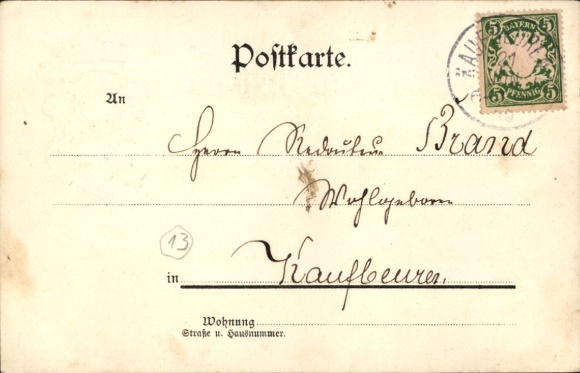 Postkarte.
BAYERN
5 5
5 5
PFENNIG
An
Herrn Redakteur Brand
Wohlgeboren
13
in Kaufbeuren.
Wohnung
Straße u. Hausnummer.